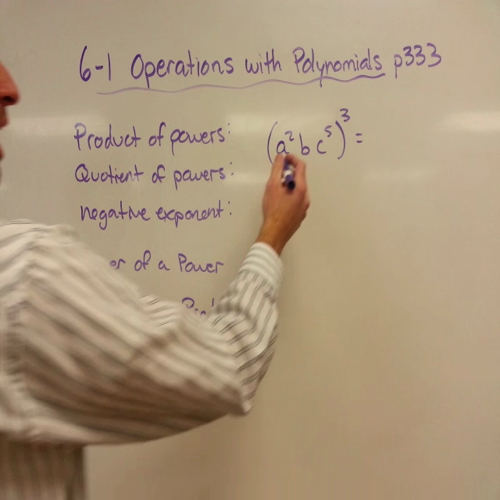 6-1 Operations with Polynomials p333
Product of powers: (a²bc⁵)³=
Quotient of powers:
negative exponent:
of a Power